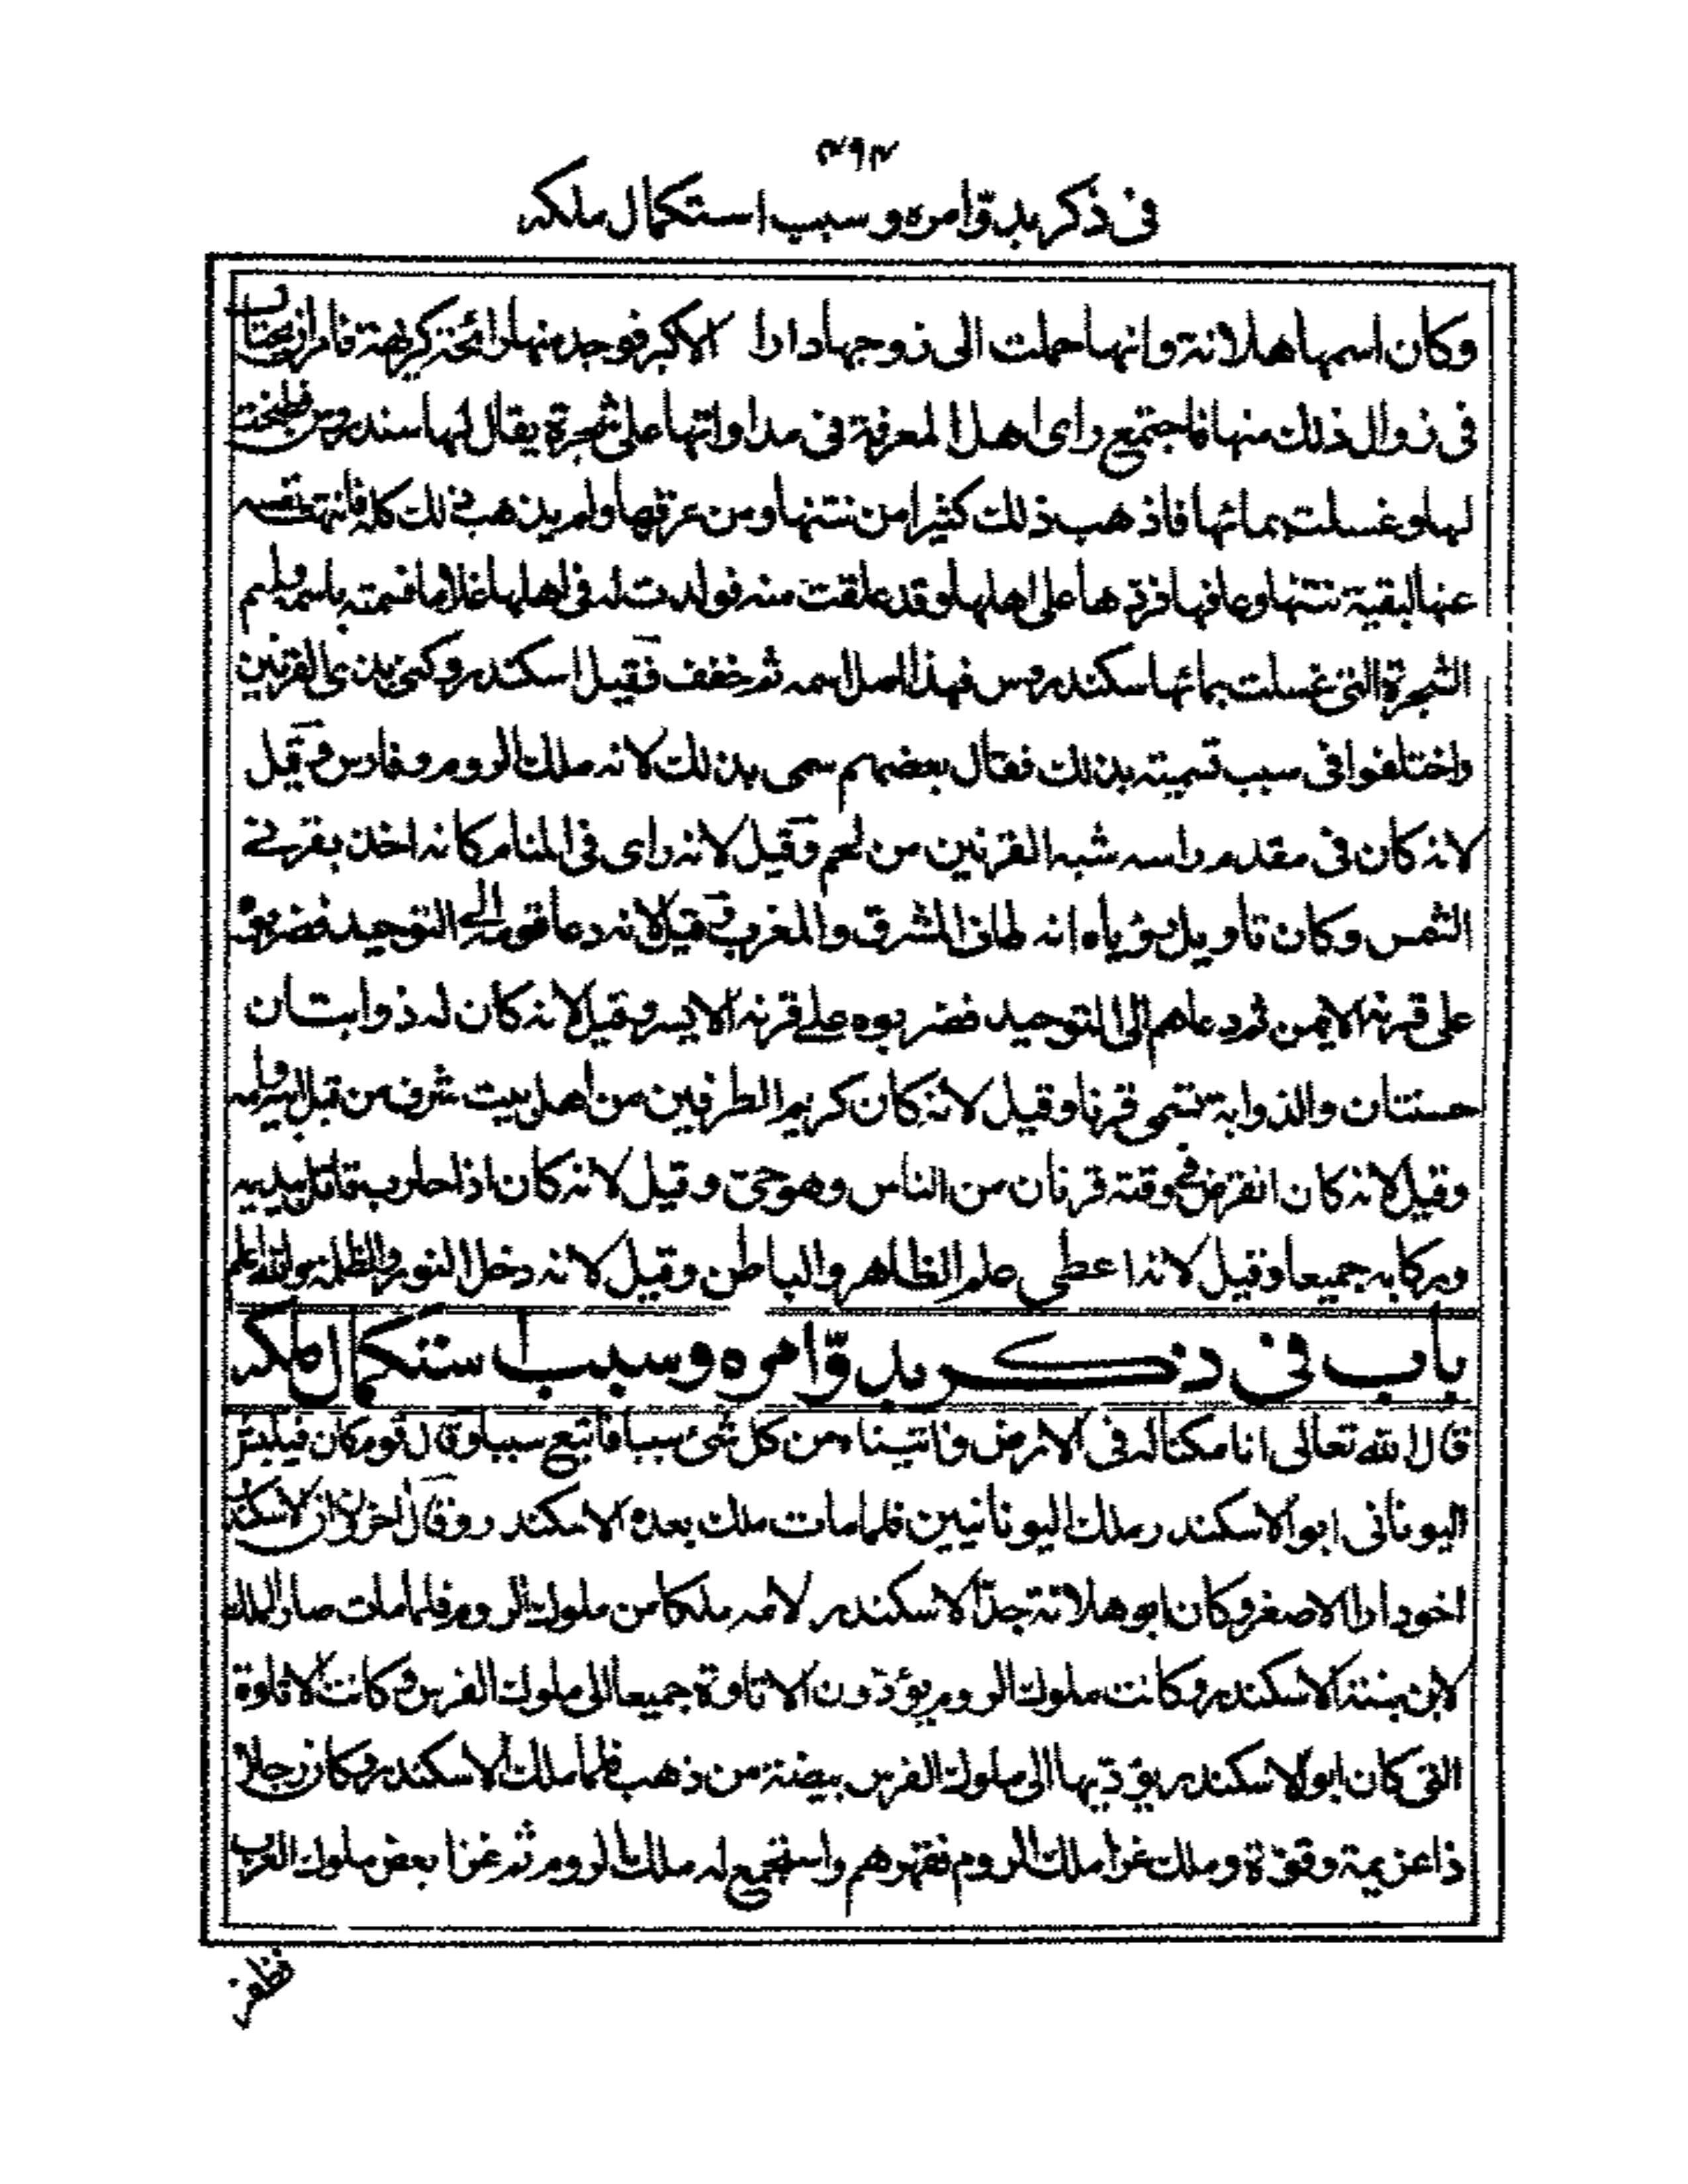 ٣٩٣
فى ذكر بدوّ امره وسبب استكمال ملكه
وكان اسمها هلانة وانها حملت الى زوجها دارا الاكبر فوجد منها رائحة كريهة فامر ان يحتال
فى زوال ذلك منها فاجتمع راى اهل المعرفة فى مداواتها على شجرة يقال لها سندروس فطبخت
لها وغسلت بمائها فاذهب ذلك كثيرا من نتنها ومن عرقها ولم يذهب ذلك كله فانتهت نفسه
عنها لبقية نتنها وعافها فردّها على اهلها وقد علقت منه فولدت له فى اهلها غلاما فسمته باسمه وباسم
الشجرة التى غسلت بمائها سكندروس فهذا اصل اسمه ثم خفف فقيل اسكندر وكنى بذى القرنين
واختلفوا فى سبب تسميته بذلك فقال بعضهم سمى بذلك لانه ملك الروم وفارس وقيل
لانه كان فى مقدم راسه شبه القرنين من لحم وقيل لانه راى فى المنام كانه اخذ بقرنے
الشمس وكان تاويل رؤياه انه طاف المشرق والمغرب وقيل لانه دعا قومه الے التوحيد فضربوه
على قرنه الايمن ثم دعاهم الى التوحيد فضربوه علے قرنه الايسر وقيل لانه كان له ذوابتان
حسنتان والذوابة تسمى قرنا وقيل لانه كان كريم الطرفين من اهل بيت شرف من قبل ابيه وامه
وقيل لانه كان انقرض فے وقته قرنان من الناس وهو حىّ وقيل لانه كان اذا حارب قاتل بيديه
وركابه جميعا وقيل لانه اعطى علم الظاهر والباطن وقيل لانه دخل النور والظلمة والله اعلم
باب فى ذكر بدوّ امره وسبب استكمال ملكه
قال الله تعالى انا مكنا له فى الارض واتيناه من كل شئ سببا فاتبع سببا وقال قوم كان فيلبش
اليونانى ابو الاسكندر ملك اليونانيين فلما مات ملك بعده الاسكندر وقال اخرون ان الاسكندر
اخو دارا الاصغر وكان ابو هلانة جدّ الاسكندر لامه ملكا من ملوك الروم فلما مات صار الملك
لابن بنته الاسكندر وكانت ملوك الروم يؤدّون الاتاوة جميعا الى ملوك الفرس وكانت الاتاوة
التى كان ابو الاسكندر يؤدّيها الى ملوك الفرس بيضة من ذهب فلما ملك الاسكندر وكان رجلا
ذا عزيمة وقوّة وملك غزا ملك الروم فقهرهم واستجمع له ملك الروم ثم غزا بعض ملوك العرب
فظفر